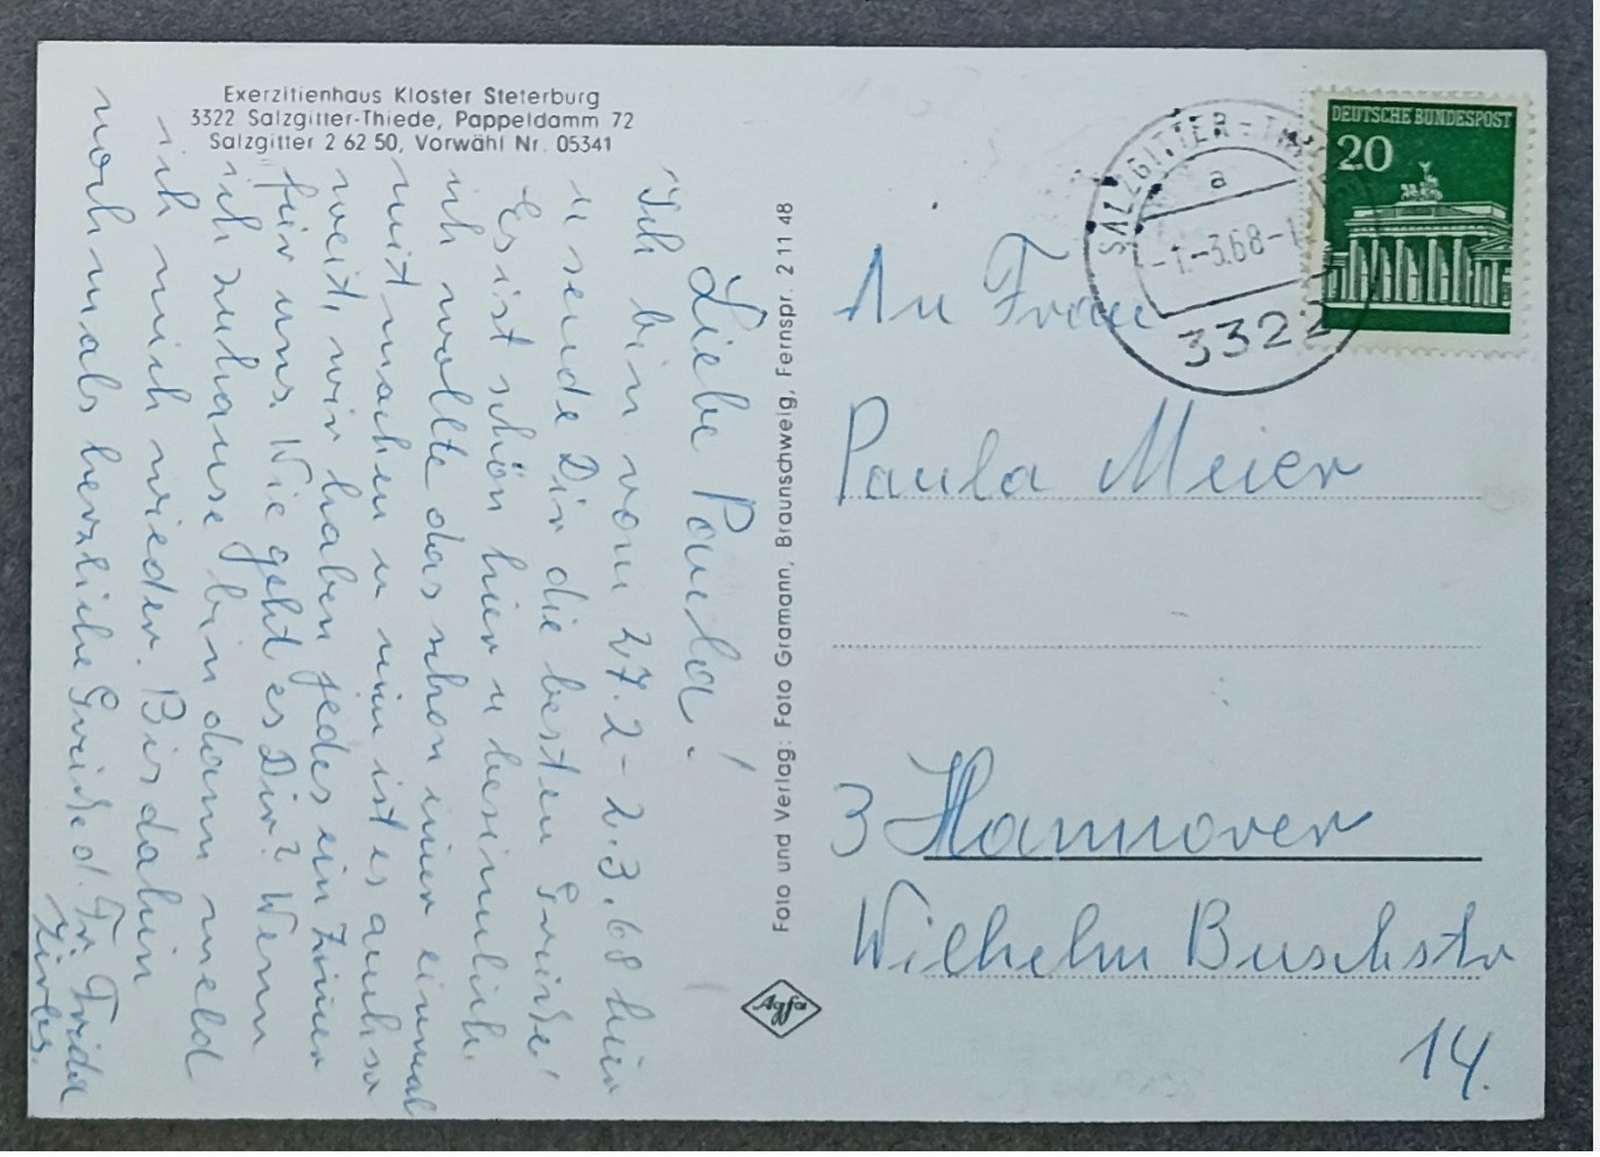 Exerzitienhaus Kloster Steterburg
3322 Salzgitter-Thiede, Pappeldamm 72
Salzgitter 2 62 50, Vorwähl Nr. 05341
Liebe Paula!
Ich bin vom 27.2 - 2.3.68 hier
u sende Dir die besten Grüße!
Es ist schön hier u besinnlich.
ich wollte das schon immer einmal
mitmachen u nun ist es auch so
weit, wir haben jedes ein Zimmer
für uns. Wie geht es Dir? Wenn
ich zuhause bin dann meld
ich mich wieder. Bis dahin
nochmals herzliche Grüße d. Fr. Frida
Foto und Verlag: Foto Gramann, Braunschweig, Fernspr. 2 11 48
Agfa
DEUTSCHE BUNDESPOST
20
SALZGITTER-TH
a
-1.-3.68-1
3322
An Frau
Paula Meier
3 Hannover
Wilhelm Buschstr
14.